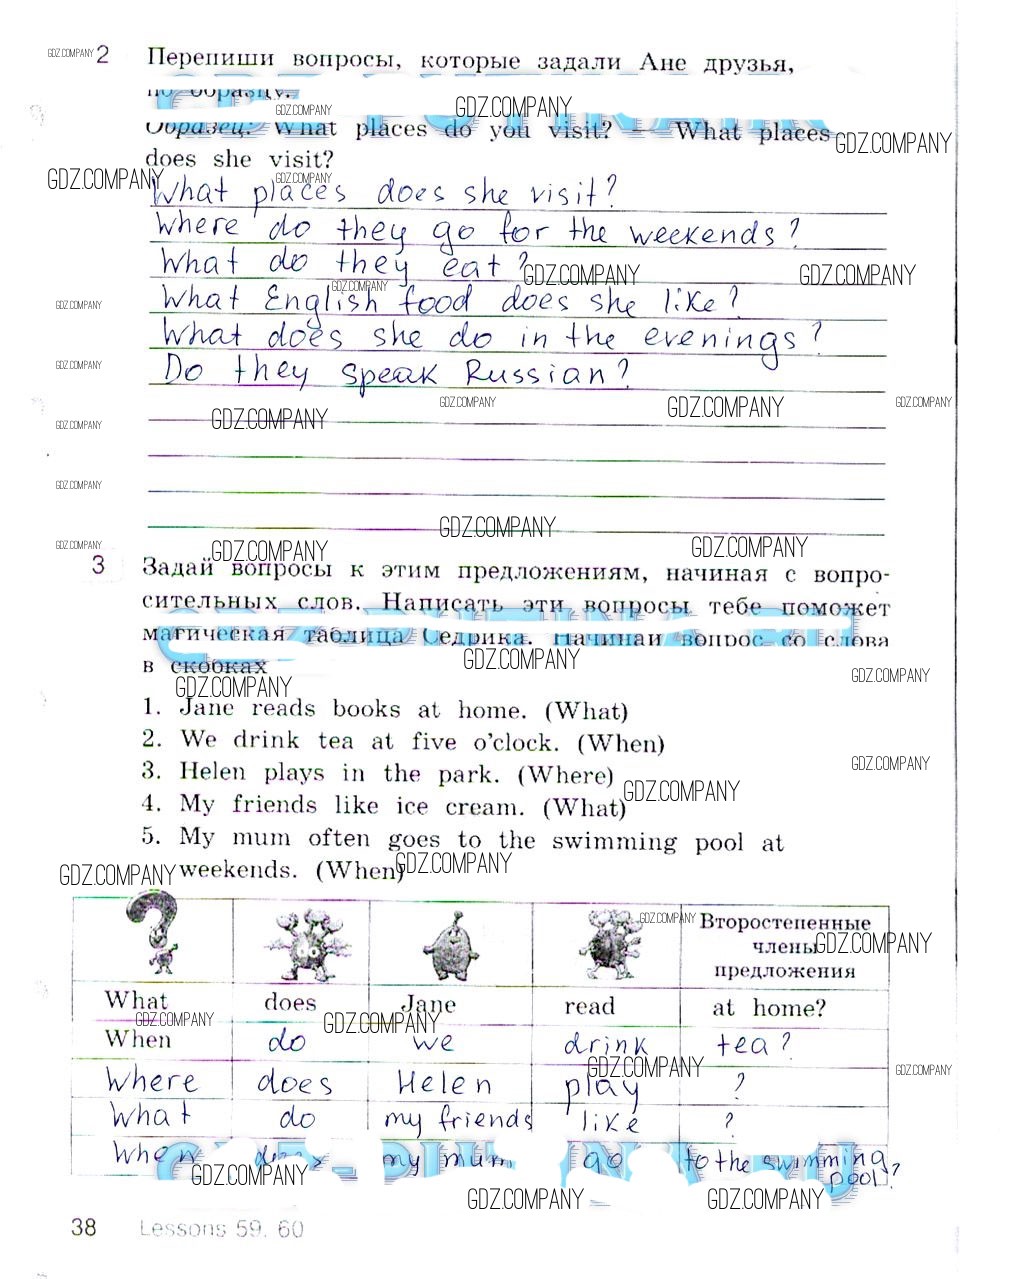 2 Перепиши вопросы, которые задали Ане друзья,
по образцу.
Образец: What places do you visit? — What places
does she visit?
What places does she visit?
Where do they go for the weekends?
What do they eat?
What English food does she like?
What does she do in the evenings?
Do they speak Russian?
3 Задай вопросы к этим предложениям, начиная с вопро-
сительных слов. Написать эти вопросы тебе поможет
магическая таблица Седрика. Начинай вопрос со слова
в скобках
1. Jane reads books at home. (What)
2. We drink tea at five o'clock. (When)
3. Helen plays in the park. (Where)
4. My friends like ice cream. (What)
5. My mum often goes to the swimming pool at
weekends. (When)
Второстепенные
члены
предложения
What does Jane read at home?
When do we drink tea?
Where does Helen play ?
What do my friends like ?
When does my mum go to the swimming
pool?
38 Lessons 59, 60
GDZ.COMPANY